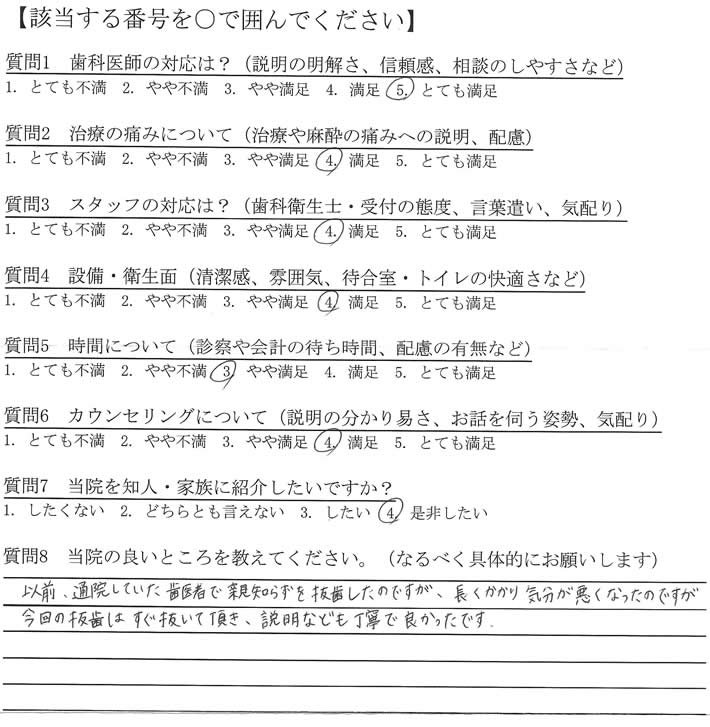 【該当する番号を○で囲んでください】
質問1 歯科医師の対応は？（説明の明解さ、信頼感、相談のしやすさなど）
1. とても不満 2. やや不満 3. やや満足 4. 満足 5. とても満足
質問2 治療の痛みについて（治療や麻酔の痛みへの説明、配慮）
1. とても不満 2. やや不満 3. やや満足 4. 満足 5. とても満足
質問3 スタッフの対応は？（歯科衛生士・受付の態度、言葉遣い、気配り）
1. とても不満 2. やや不満 3. やや満足 4. 満足 5. とても満足
質問4 設備・衛生面（清潔感、雰囲気、待合室・トイレの快適さなど）
1. とても不満 2. やや不満 3. やや満足 4. 満足 5. とても満足
質問5 時間について（診察や会計の待ち時間、配慮の有無など）
1. とても不満 2. やや不満 3. やや満足 4. 満足 5. とても満足
質問6 カウンセリングについて（説明の分かり易さ、お話を伺う姿勢、気配り）
1. とても不満 2. やや不満 3. やや満足 4. 満足 5. とても満足
質問7 当院を知人・家族に紹介したいですか？
1. したくない 2. どちらとも言えない 3. したい 4. 是非したい
質問8 当院の良いところを教えてください。（なるべく具体的にお願いします）
以前、通院していた歯医者で親知らずを抜歯したのですが、長くかかり気分が悪くなったのですが
今回の抜歯はすぐ抜いて頂き、説明なども丁寧で良かったです.